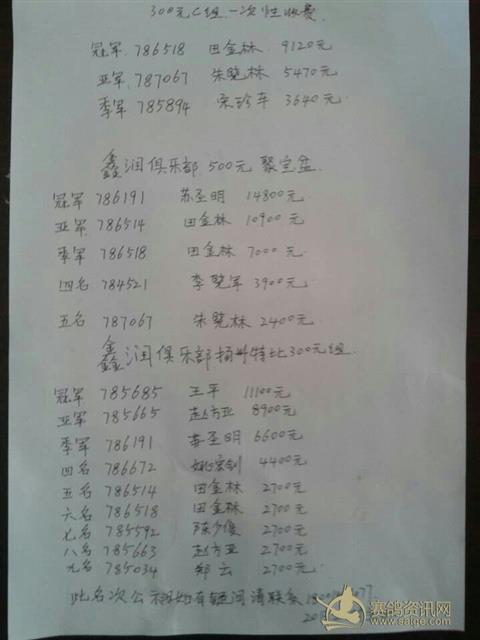 300元C组一次性收费
冠军 786518 田金林 9120元
亚军 787067 朱晓林 5470元
季军 785894 宋珍车 3640元
鑫润俱乐部500元聚宝盆
冠军 786191 苏圣明 14800元
亚军 786514 田金林 10900元
季军 786518 田金林 7000元
四名 784521 李晓军 3900元
五名 787067 朱晓林 2400元
鑫润俱乐部指升特比300元组
冠军 785685 王平 11100元
亚军 785665 赵方亚 8900元
季军 786191 苏圣明 6600元
四名 786672 4400元
五名 786514 田金林 2700元
六名 786518 田金林 2700元
七名 785592 陈少俊 2700元
八名 785663 赵方亚 2700元
九名 785034 郑云 2700元
此名次公示 如有疑问请联系
赛鸽资讯网
www.saige.com